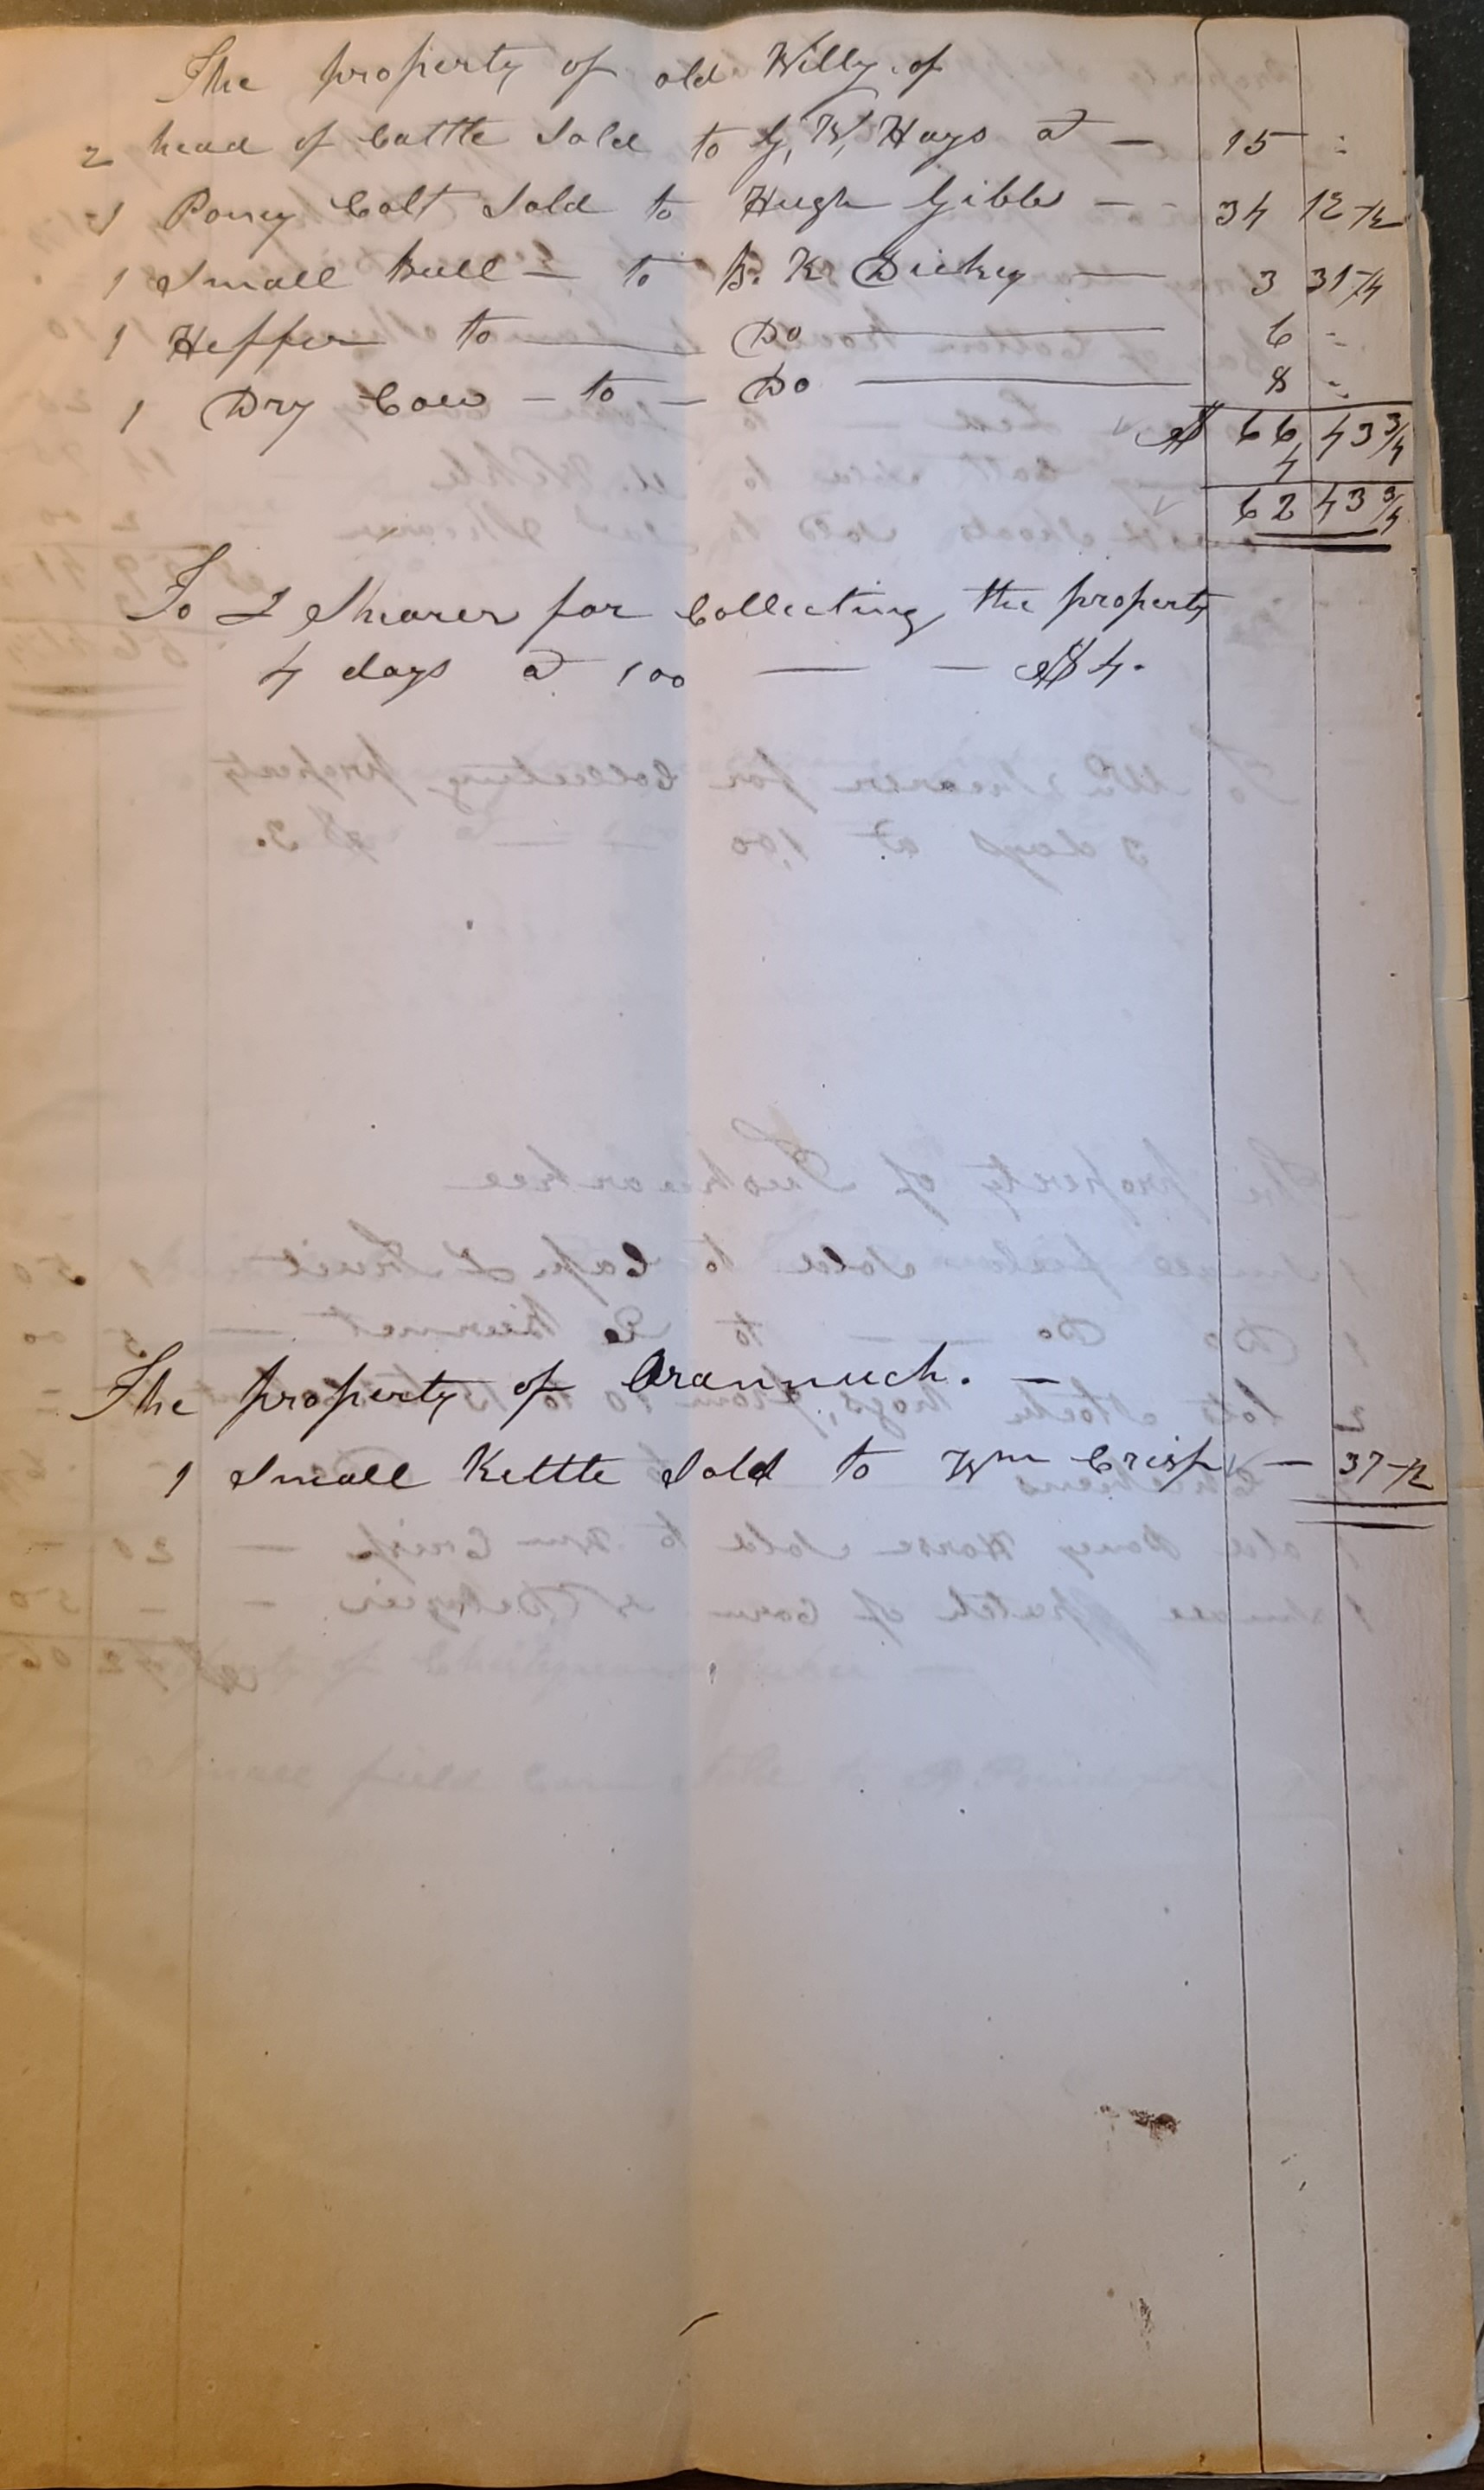 The property of old Willy. of
2 head of Cattle Sold to G, W, Hays at — 15 =
1 Poney Colt Sold to Hugh Gibbs — - 34 12 ½
1 Small Bull — to B. K. Dickey — 3 31 ¼
1 Heffer to — Do — 6 =
1 Dry Cow — to — Do — 8 =
$ 66, 43 ¾
4
62 43 ¾
To L Shearer for Collecting the property
4 days at 100 — — $ 4.
The property of Arannuch. —
1 Small Kettle Sold to Wm Crisp — 37 ½